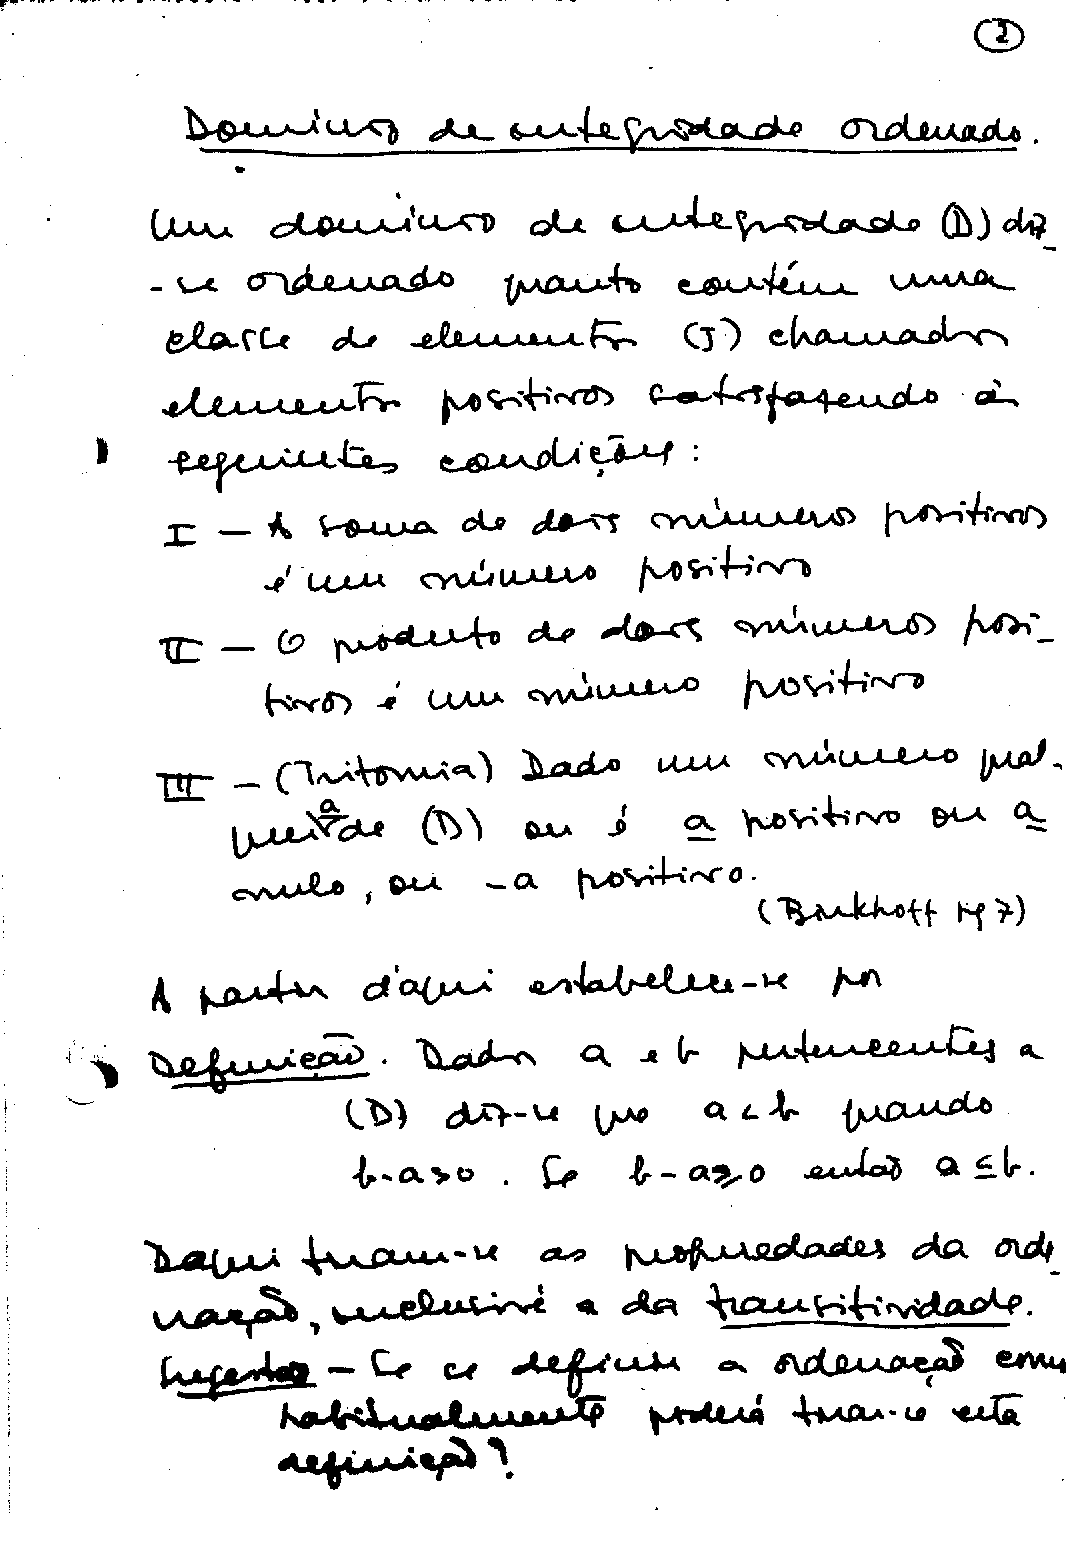 2
Dominio de integridade ordenado.
Um dominio de integridade (D) diz-
-se ordenado quanto contém uma
classe de elementos (J) chamados
elementos positivos satisfazendo às
seguintes condições:
I – A soma de dois números positivos
é um número positivo
II – O produto de dois números posi-
tivos é um número positivo
III – (Tritomia) Dado um número qual-
quer a de (D) ou é a positivo ou a
nulo, ou -a positivo.
(Birkhoff pg 7)
A partir d'aqui estabelece-se por
Definição. Dados a e b pertencentes a
(D) diz-se que a<b quando
b-a>0. Se b-a⩾0 então a≤b.
Daqui tiram-se as propriedades da orde-
nação, inclusivé a da transitividade.
Sugestão – Se se definir a ordenação como
habitualmente poderá tirar-se esta
definição?